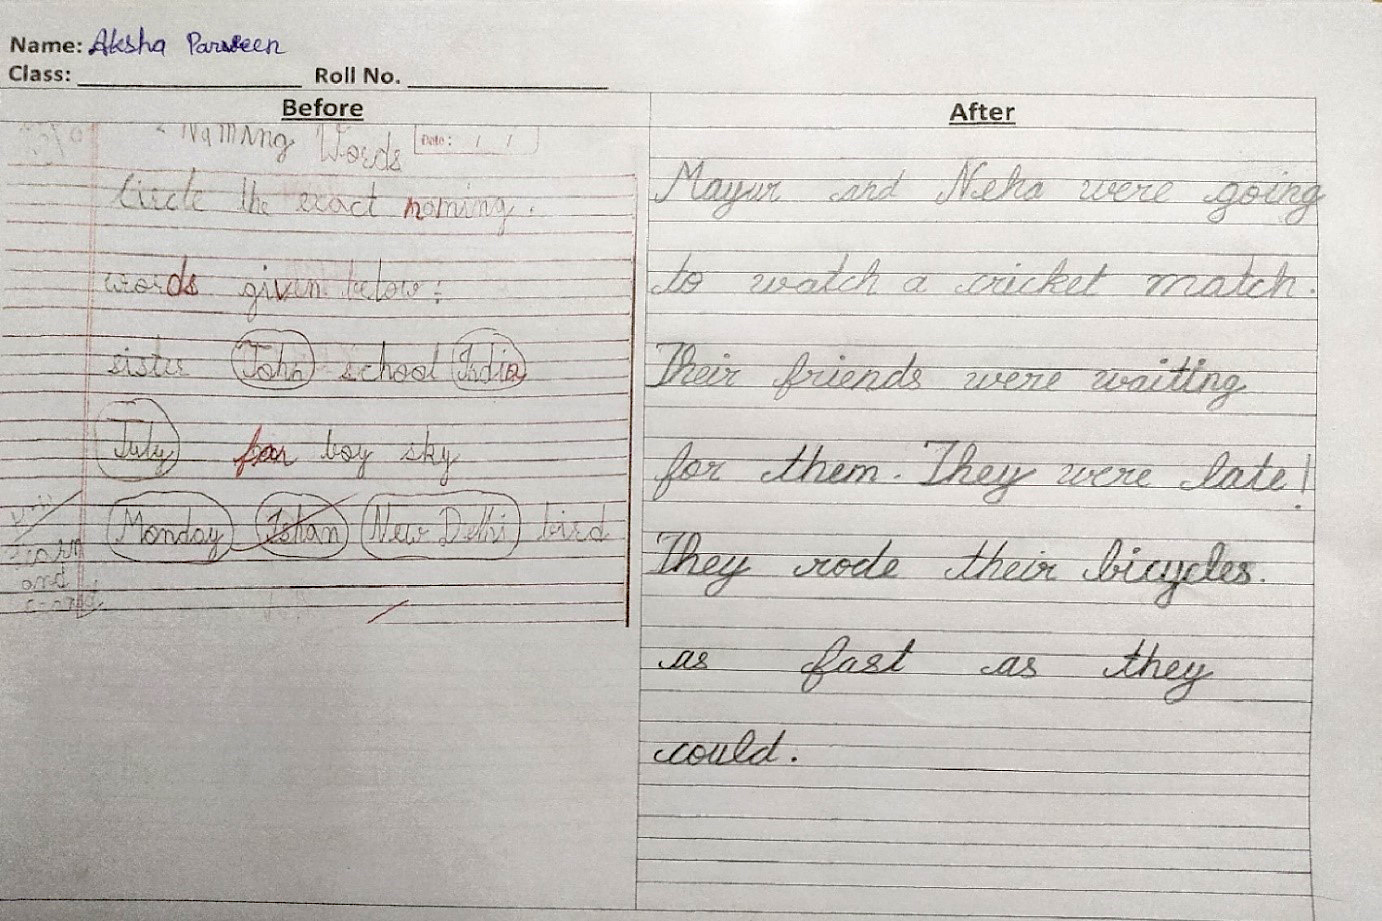 Name: Aksha Parveen
Class: Roll No.
Before
Naming Words
Date: / /
Circle the exact naming.
words given below:
sister John school India
July far boy sky
Monday Ishan New Delhi bird
Learn
and
After
Mayur and Neha were going
to watch a cricket match.
Their friends were waiting
for them. They were late!
They rode their bicycles.
as fast as they
could.